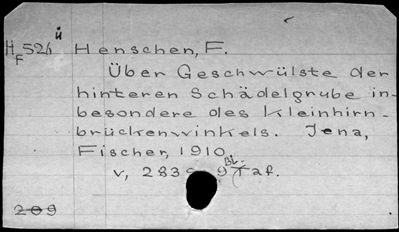 ü
H 526 Henschen, F.
F
Über Geschwülste der
hinteren Schädelgrube in-
besondere des Kleinhirn-
brückenwinkels. Jena,
Fischer, 1910.
Bl.
v, 283 9 Taf.
209